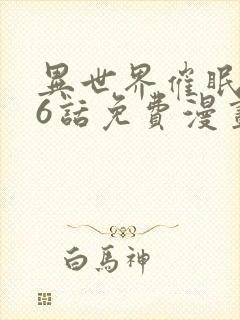 異世界催眠
6話免費漫
白馬神